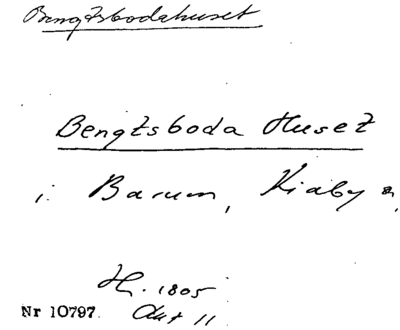 Bengtsbodahuset
Bengtsboda Huset
i Barum, Kiaby s,
H. 1805
Nr 10797. Akt 11